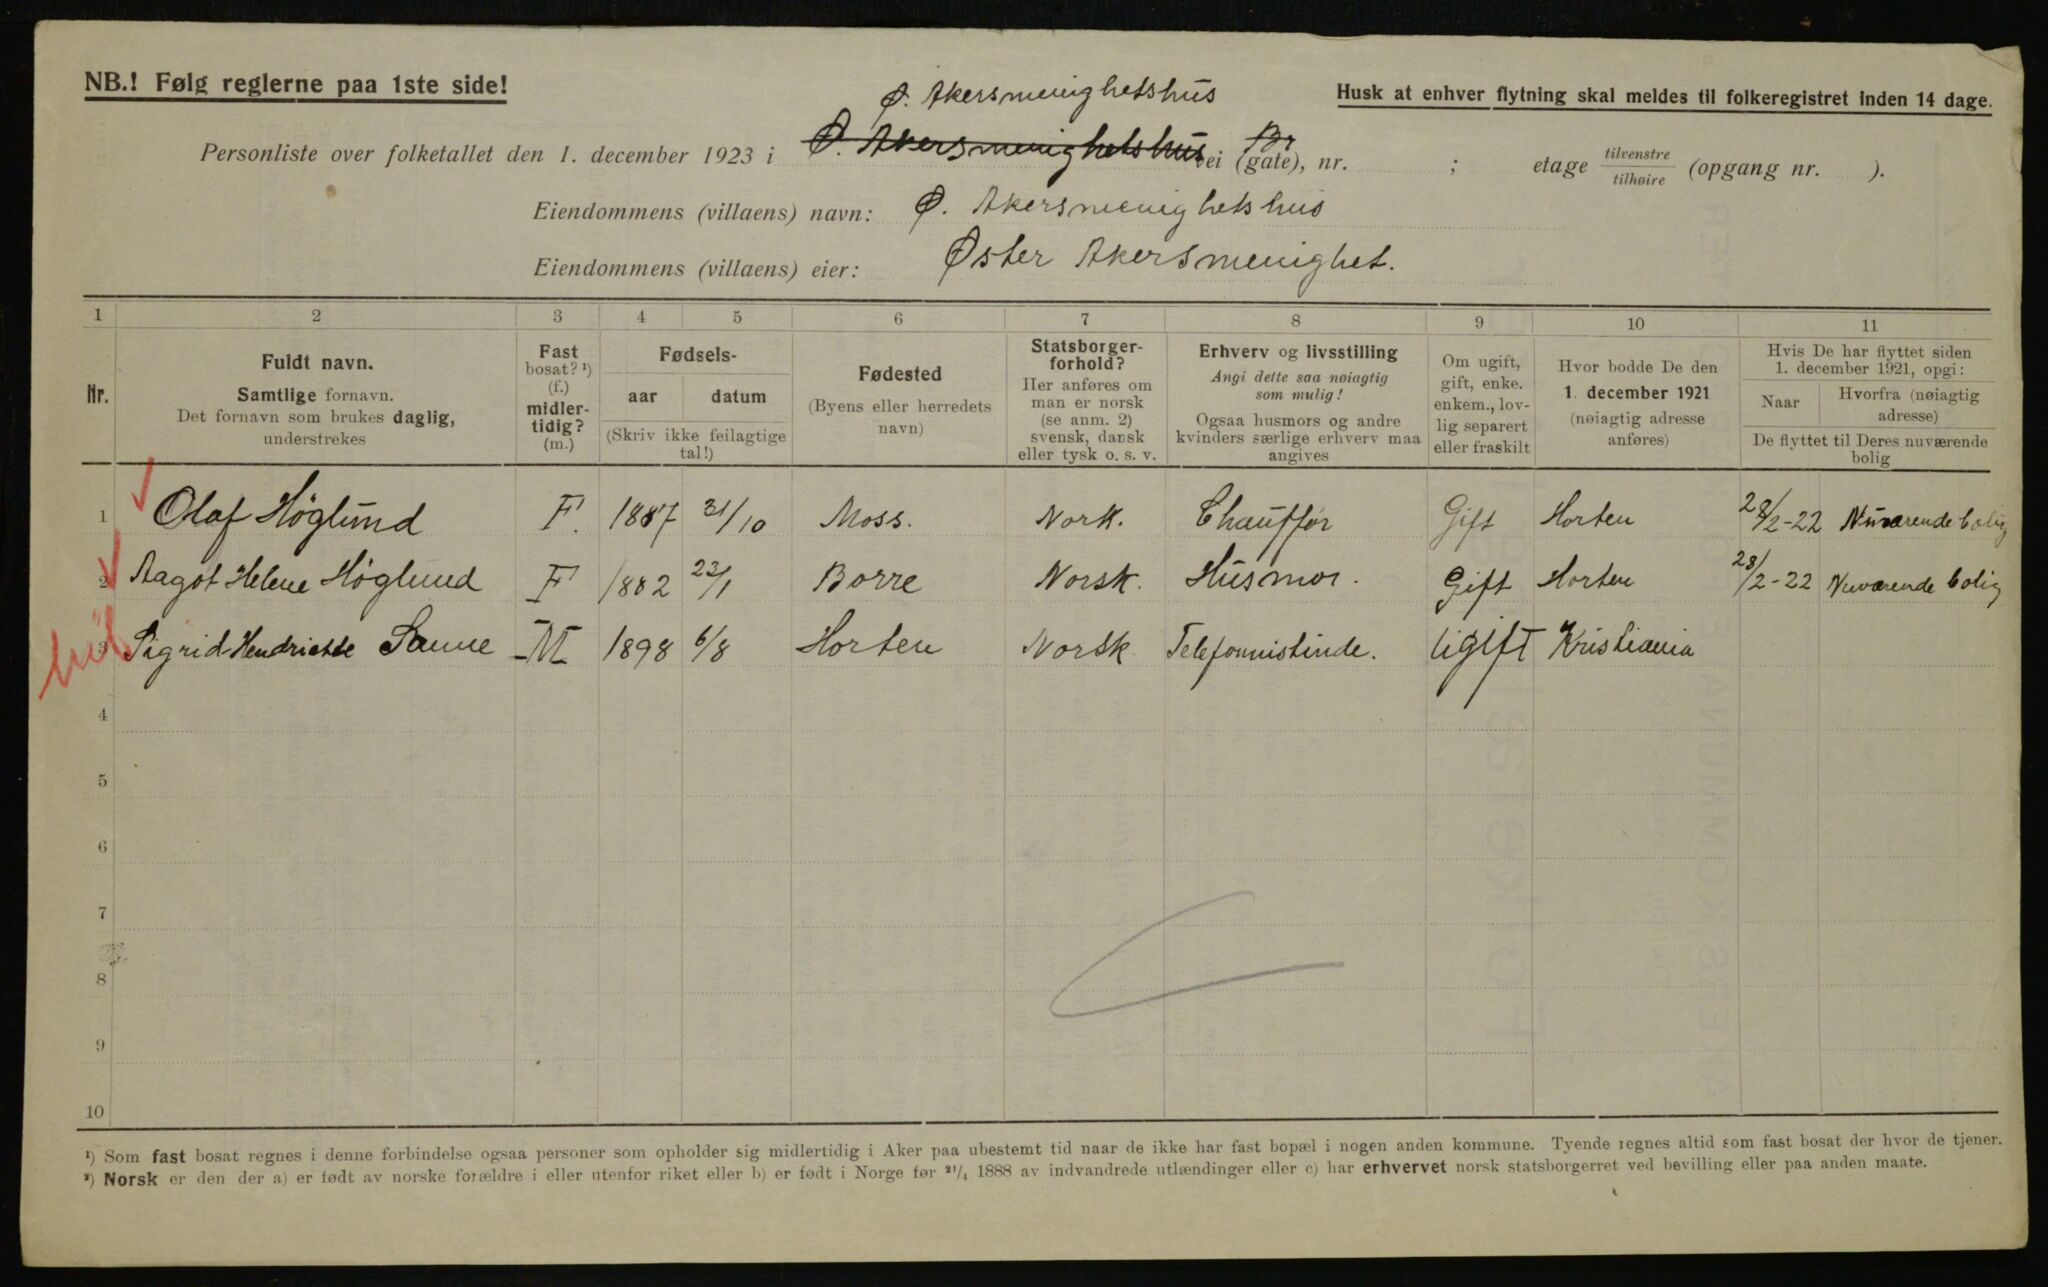 NB.! Følg reglerne paa 1ste side!
Husk at enhver flytning skal meldes til folkeregistret inden 14 dage.
Ø. Akersmenighetshus
Personliste over folketallet den 1. december 1923 i Ø. Akersmenighetshus vei (gate), nr. ; etage tilvenstre tilhøire (opgang nr. ).
Eiendommens (villaens) navn: Ø. Akersmenighetshus
Eiendommens (villaens) eier: Øster Akersmenighet.
1 2 3 4 5 6 7 8 9 10 11
Nr.
Fuldt navn.
Samtlige fornavn.
Det fornavn som brukes daglig,
understrekes
Fast
bosat? ¹)
(f.)
midler-
tidig?
(m.)
Fødsels-
aar datum
(Skriv ikke feilagtige
tal!)
Fødested
(Byens eller herredets
navn)
Statsborger-
forhold?
Her anføres om
man er norsk
(se anm. 2)
svensk, dansk
eller tysk o. s. v.
Erhverv og livsstilling
Angi dette saa nøiagtig
som mulig!
Ogsaa husmors og andre
kvinders særlige erhverv maa
angives
Om ugift,
gift, enke.
enkem., lov-
lig separert
eller fraskilt
Hvor bodde De den
1. december 1921
(nøiagtig adresse
anføres)
Hvis De har flyttet siden
1. december 1921, opgi:
Naar Hvorfra (nøiagtig
adresse)
De flyttet til Deres nuværende
bolig
1 Olaf Höglund F. 1887 31/10 Moss. Nork. Chauffør Gift Horten 28/2-22 Nuværende bolig
2 Aagot Helene Höglund F 1882 23/1 Borre Norsk. Husmor. Gift Horten 28/2-22 Nuværende bolig
3 Sigrid Hendriette Sanne M 1898 6/8 Horten Norsk Telefonnistinde. Ugift Kristiania
4
5
6
7
8
9
10
¹) Som fast bosat regnes i denne forbindelse ogsaa personer som opholder sig midlertidig i Aker paa ubestemt tid naar de ikke har fast bopæl i nogen anden kommune. Tyende regnes altid som fast bosat der hvor de tjener.
²) Norsk er den der a) er født av norske forældre i eller utenfor riket eller b) er født i Norge før 21/4 1888 av indvandrede utlændinger eller c) har erhvervet norsk statsborgerret ved bevilling eller paa anden maate.